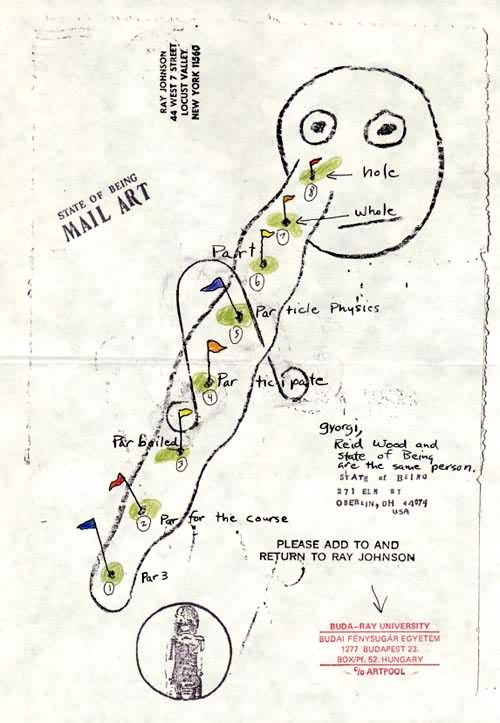 RAY JOHNSON
44 WEST 7 STREET
LOCUST VALLEY
NEW YORK 11560
STATE OF BEING
MAIL ART
8
hole
whole
7
Part
6
Par ticle Physics
5
Par tici pate
4
Par boiled
3
gyorgi,
Reid Wood and
State of Being
are the same person.
STATE of BEING
271 ELM ST
OBERLIN, OH 44074
USA
2
Par for the course
PLEASE ADD TO AND
RETURN TO RAY JOHNSON
1
Par 3
BUDA-RAY UNIVERSITY
BUDAI FÉNYSUGÁR EGYETEM
1277 BUDAPEST 23.
BOX/Pf. 52. HUNGARY
c/o ARTPOOL